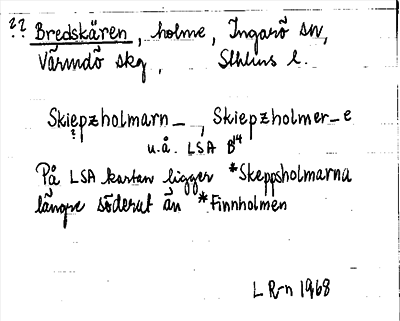 ?? Bredskären, holme, Ingarö sn,
Värmdö skg, Sthlms l.
Skiepzholmarn_, Skiepzholmer_e
?
u.å. LSA B14
På LSA kartan ligger *Skeppsholmarna
längre söderut än *Finnholmen
L R-n 1968